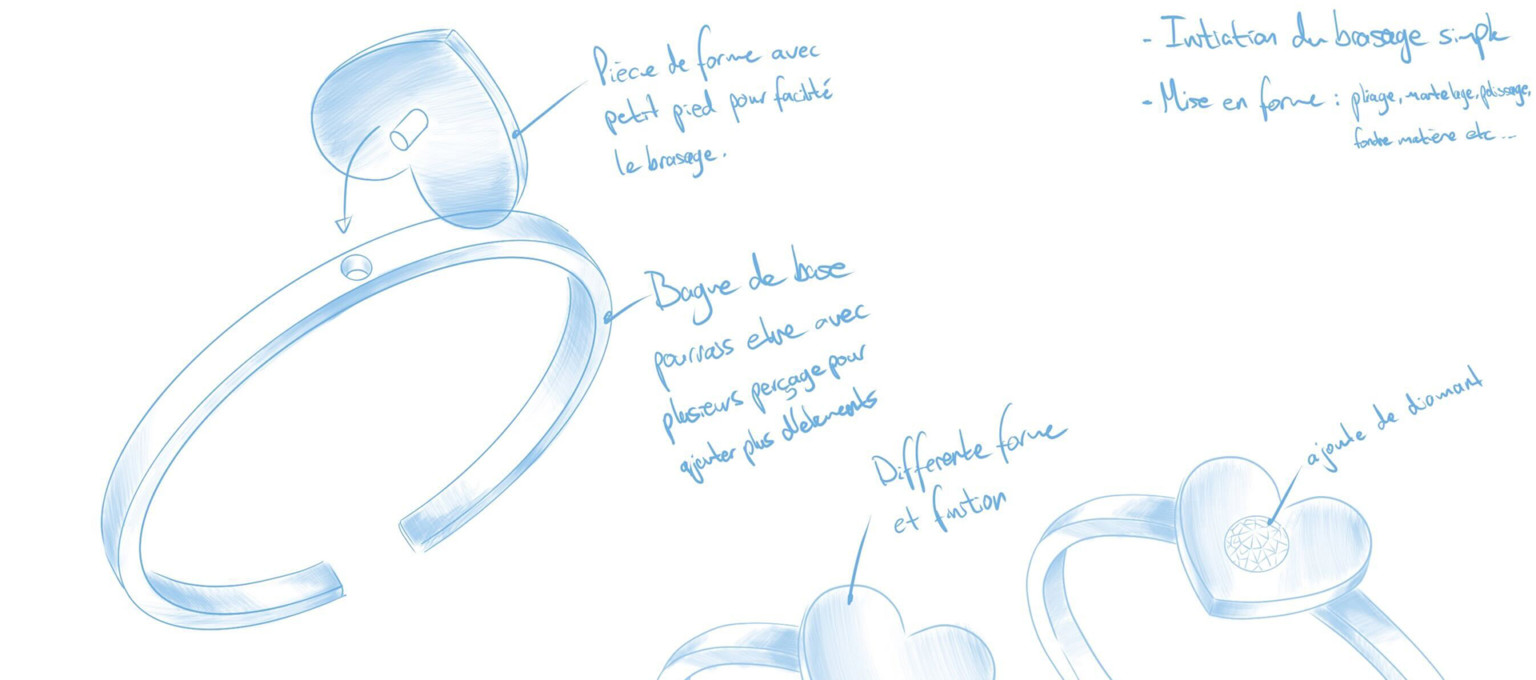 Pièce de forme avec
petit pied pour facilité
le brasage.
- Initiation du brasage simple
- Mise en forme : pliage, martelage, polissage,
fondre matière etc ...
Bague de base
pourrais etre avec
plusieurs perçage pour
ajouter plus d'élements
Differente forme
et finition
ajoute de diamant